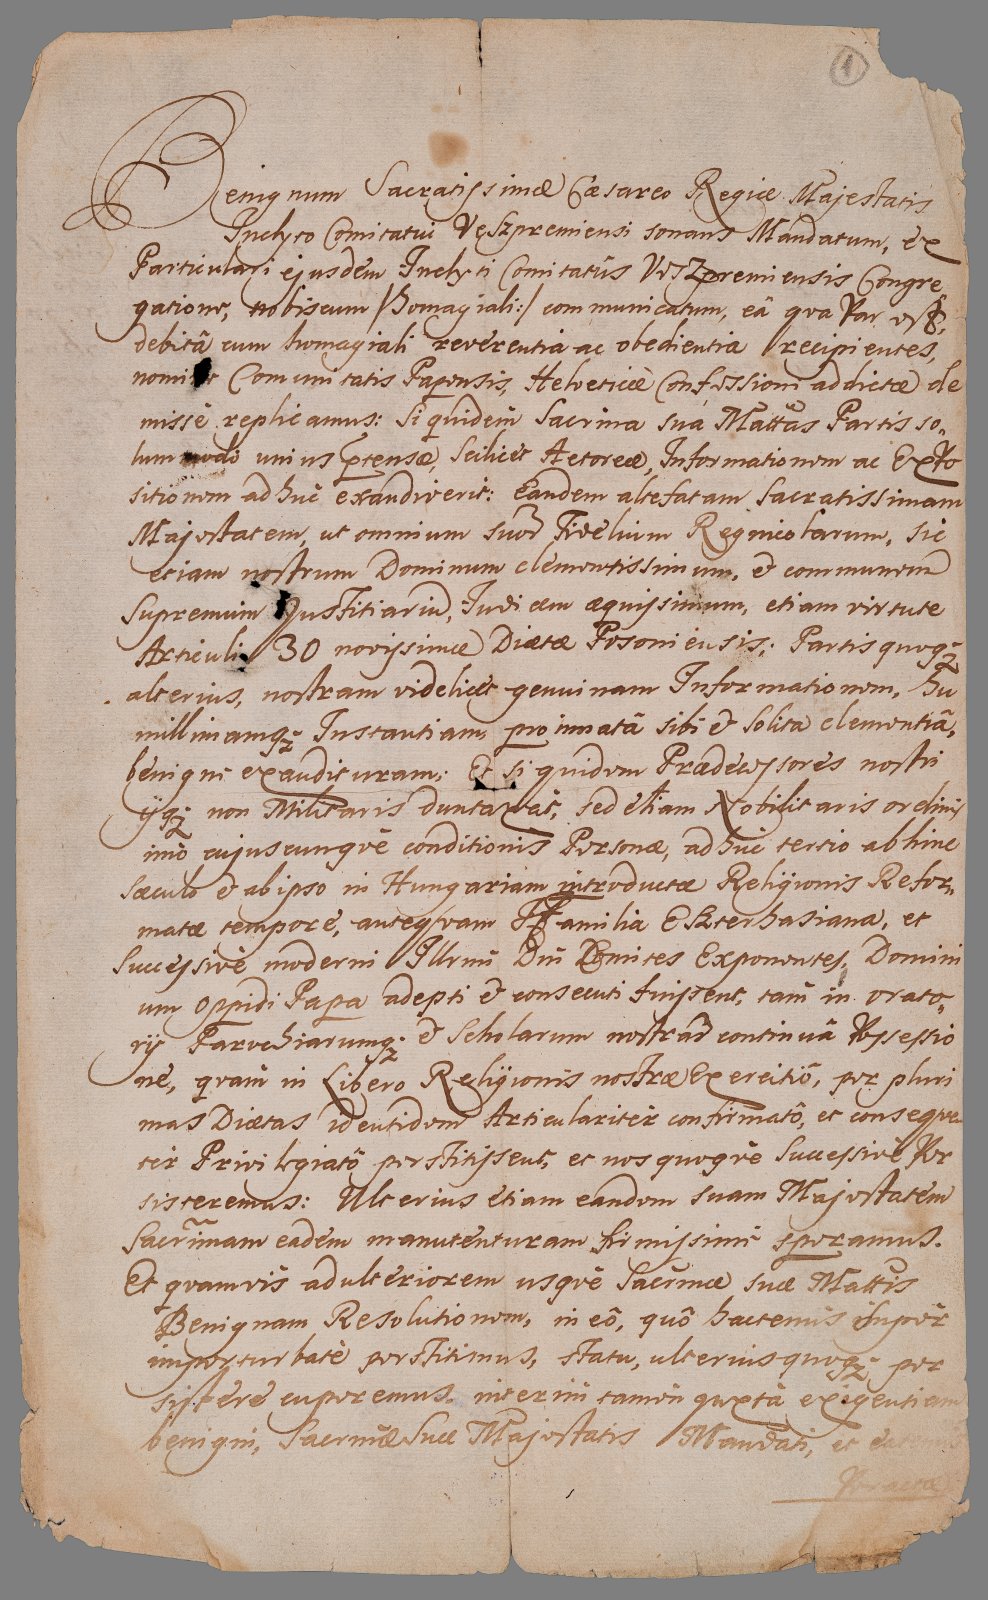 1
Benignum Sacratissimæ Cæsareo Regiæ Majestatis
Inclyto Comitatui Veszpremiensi sonans Mandatum, ex
Particulari ejusdem Inclyti Comitatûs Veszpremiensis Congre„
gatione, nobiscum /:homagiali:/ communicatum, eâ qva par est,
debitâ cum homagiali reverentia ac obedientia recipientes,
nomine Comunitatis Papensis, Helveticæ Confessioni addictæ de
missè replicamus: Siquidem Sacrma sua Mattas Partis so„
lummodo unius prtensæ, Scilicet Actoreæ, Informationem ac Expo
sitionem adhuc exaudiverit: Eandem altefatam Sacratissimam
Majestatem, ut omnium suor Fidelium Regnicolarum, sic
etiam nostrum Dominum clementissimum, & communem
Supremum Justitiariū, Judicem æquissimum, etiam virtute
Articuli 30 novissimæ Diætæ Posoniensis; Partis quoqȝ
alterius, nostram videlicet genuinam Informationem, hu
millimamqȝ Instantiam, pro innatâ sibi & solita clementiâ,
benigne exaudituram; Et siquidem Prædecessores nostri
ijqȝ non Militaris duntaxat, sed etiam Nobilitaris ordinis
imò cujuscunqvè conditionis Personæ, adhuc tertio abhinc
Sæculo & ab ipso in Hungariam introductæ Religionis Refor„
matæ tempore, anteqvam Familia Eszterhasiana, et
Successivè moderni Illrmi Dni Comites Exponentes, Domini
um Oppidi Papa adepti & consecuti fuissent, tam in orato„
rij Parochiarumqȝ & Scholarum nostrar continuâ Possessio
ne, qvam in Libero Religionis nostræ Exercitiô, per pluri
mas Diætas identidem Articulariter confirmatô, et conseqven
ter Privilegiatô perstitissent, et nos quoqvè Successivè Per
sisteremus: Ulterius etiam eandem suam Majestatem
Sacrmam eadem manutenturam firmissimè speramus.
Et qvamvis ad ulteriorem usqvè Sacrmæ suæ Mattis
Benignam Resolutionem, in eô, quô hactenus super
imperturbatè perstitimus, statu, ulterius quoqȝ per
sistere cuperemus. interim tamen juxta exigentiam
benigni, Sacrmæ Suæ Majestatis Mandati, et